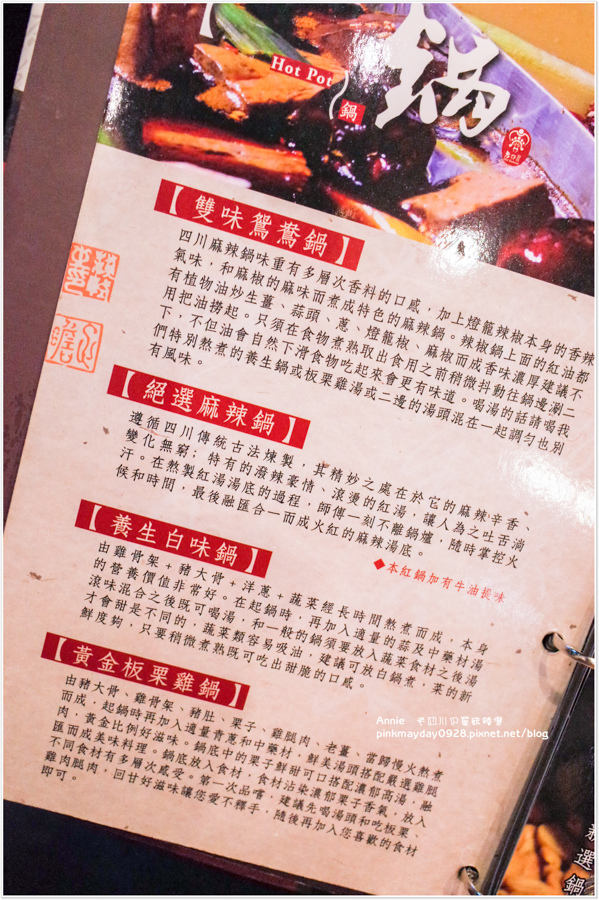 鍋
Hot Pot
鍋
【雙味鴛鴦鍋】
四川麻辣鍋味重有多層次香料的口感，加上燈籠辣椒本身的香辣
氣味，和麻椒的麻味而煮成特色的麻辣鍋。辣椒鍋上面的紅油都
有植物油炒生薑、蒜頭、蔥、燈籠椒、麻椒而成香味濃厚建議不
用把油撈起。只須在食物煮熟取出食用之前稍微抖動往鍋邊涮二
下，不但油會自然下滑食物吃起來會更有味道。喝湯的話請喝我
們特別熬煮的養生鍋或板栗雞湯或二邊的湯頭混在一起調勻也別
有風味。
【絕選麻辣鍋】
遵循四川傳統古法煉製，其精妙之處在於它的麻辣辛香、
變化無窮；特有的潑辣豪情、滾燙的紅湯，讓人為之吐舌淌
汗。在熬製紅湯湯底的過程，師傅一刻不離鍋爐，隨時掌控火
候和時間，最後融匯合一而成火紅的麻辣湯底。
◆本紅鍋加有牛油提味
【養生白味鍋】
由雞骨架+豬大骨+洋蔥+蔬菜經長時間熬煮而成，本身
的營養價值非常好。在起鍋時，再加入適量的蒜及中藥材湯
滾味混合之後既可喝湯，和一般的鍋須要放入蔬菜食材之後湯
才會甜是不同的，蔬菜類容易吸油，建議可放白鍋煮，菜的新
鮮度夠，只要稍微煮熟既可吃出甜脆的口感。
【黃金板栗雞鍋】
由豬大骨、雞骨架、豬肚、栗子、雞腿肉、老薑、當歸慢火熬煮
而成，起鍋時再加入適量青蔥和中藥材，鮮美湯頭搭配嚴選雞腿
肉，黃金比例好滋味。鍋底中的栗子鮮甜可口搭配濃郁高湯，融
匯而成美味料理。鍋底放入食材，食材沾染濃郁栗子香氣，放入
不同食材有多層次感受。第一次品嚐，建議先喝湯頭和吃板栗、
雞肉腿肉，回甘好滋味讓您愛不釋手，隨後再加入您喜歡的食材
即可。
Annie
pinkmayday0928.pixnet.net/blog
新
選
鍋